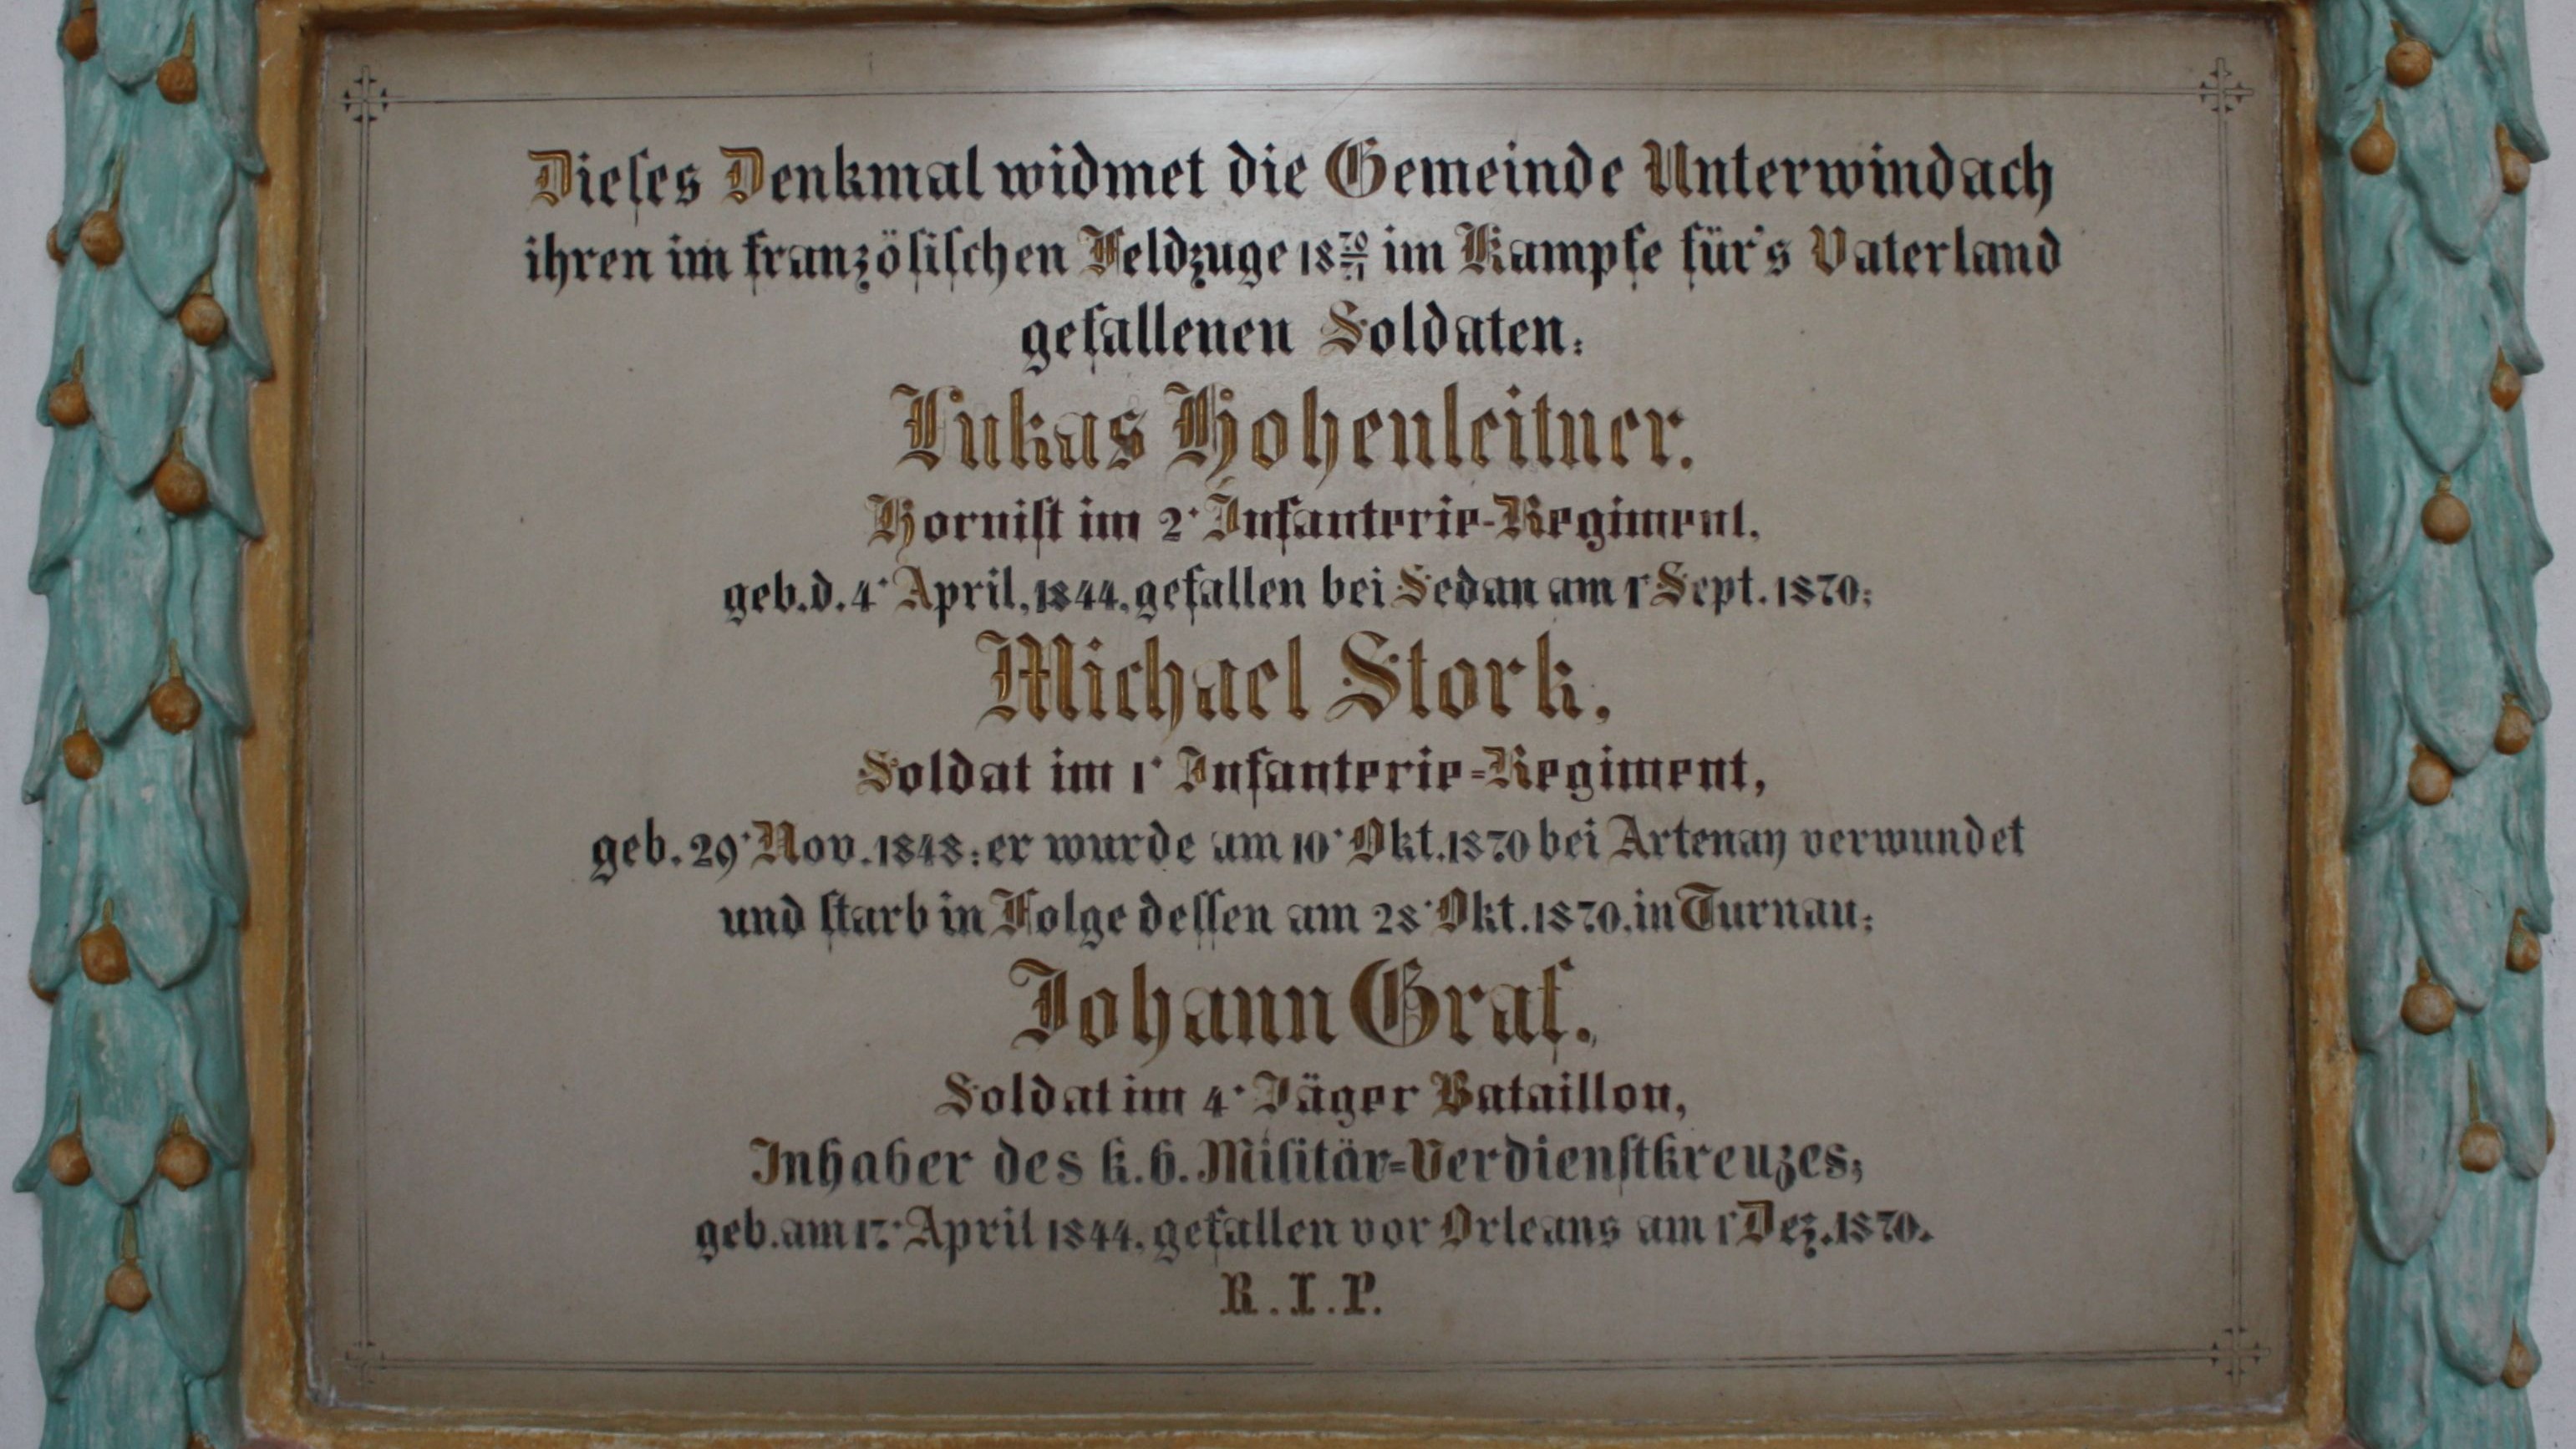 Dieſes Denkmal widmet die Gemeinde Unterwindach
ihren im franzöſiſchen Feldzuge 18 70/71 im Kampfe für's Vaterland
gefallenen Soldaten:
Lukas Hohenleitner.
Horniſt im 2. Infanterie-Regiment,
geb. d. 4. April, 1844, gefallen bei Sedan am 1. Sept. 1870;
Michael Stork,
Soldat im 1. Infanterie=Regiment,
geb. 29. Nov. 1848; er wurde am 10. Okt. 1870 bei Artenay verwundet
und ſtarb in Folge deſſen am 28. Okt. 1870, in Turnau;
Johann Graf.
Soldat im 4. Jäger Bataillon,
Inhaber des k. b. Militär=Verdienſtkreuzes;
geb. am 17. April 1844, gefallen vor Orleans am 1. Dez. 1870.
R. I. P.